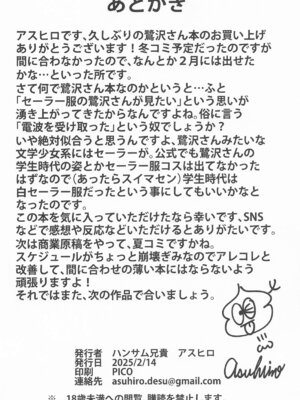 あとがき
アスヒロです、久しぶりの鷺沢さん本のお買い上げ
ありがとうございます!冬コミ予定だったのですが
間に合わなかったので、なんとか2月には出せた
かな…といった所です。
さて何で鷺沢さん本なのかというと…ふと
「セーラー服の鷺沢さんが見たい」という思いが
湧き上がってきたからなんですよね。俗に言う
「電波を受け取った」という奴でしょうか?
いや絶対似合うと思うんですよ、鷺沢さんみたいな
文学少女系にはセーラーが。公式でも鷺沢さんの
学生時代の姿とかセーラー服コスは出てなかった
はずなので(あったらスイマセン)学生時代は
白セーラー服だったという事にしてもいいかなと
なったのです。
この本を気に入っていただけたなら幸いです、SNS
などで感想や反応などいただけるとありがたいです。
次は商業原稿をやって、夏コミですかね。
スケジュールがちょっと崩壊ぎみなのでアレコレと
改善して、間に合わせの薄い本にはならないよう
頑張りますよ!
それではまた、次の作品で合いましょう。
Asuhiro
発行者 ハンサム兄貴 アスヒロ
発行日 2025/2/14
印刷 PICO
連絡先 asuhiro.desu@gmail.com
※ 18歳未満への閲覧、購読を禁止します。